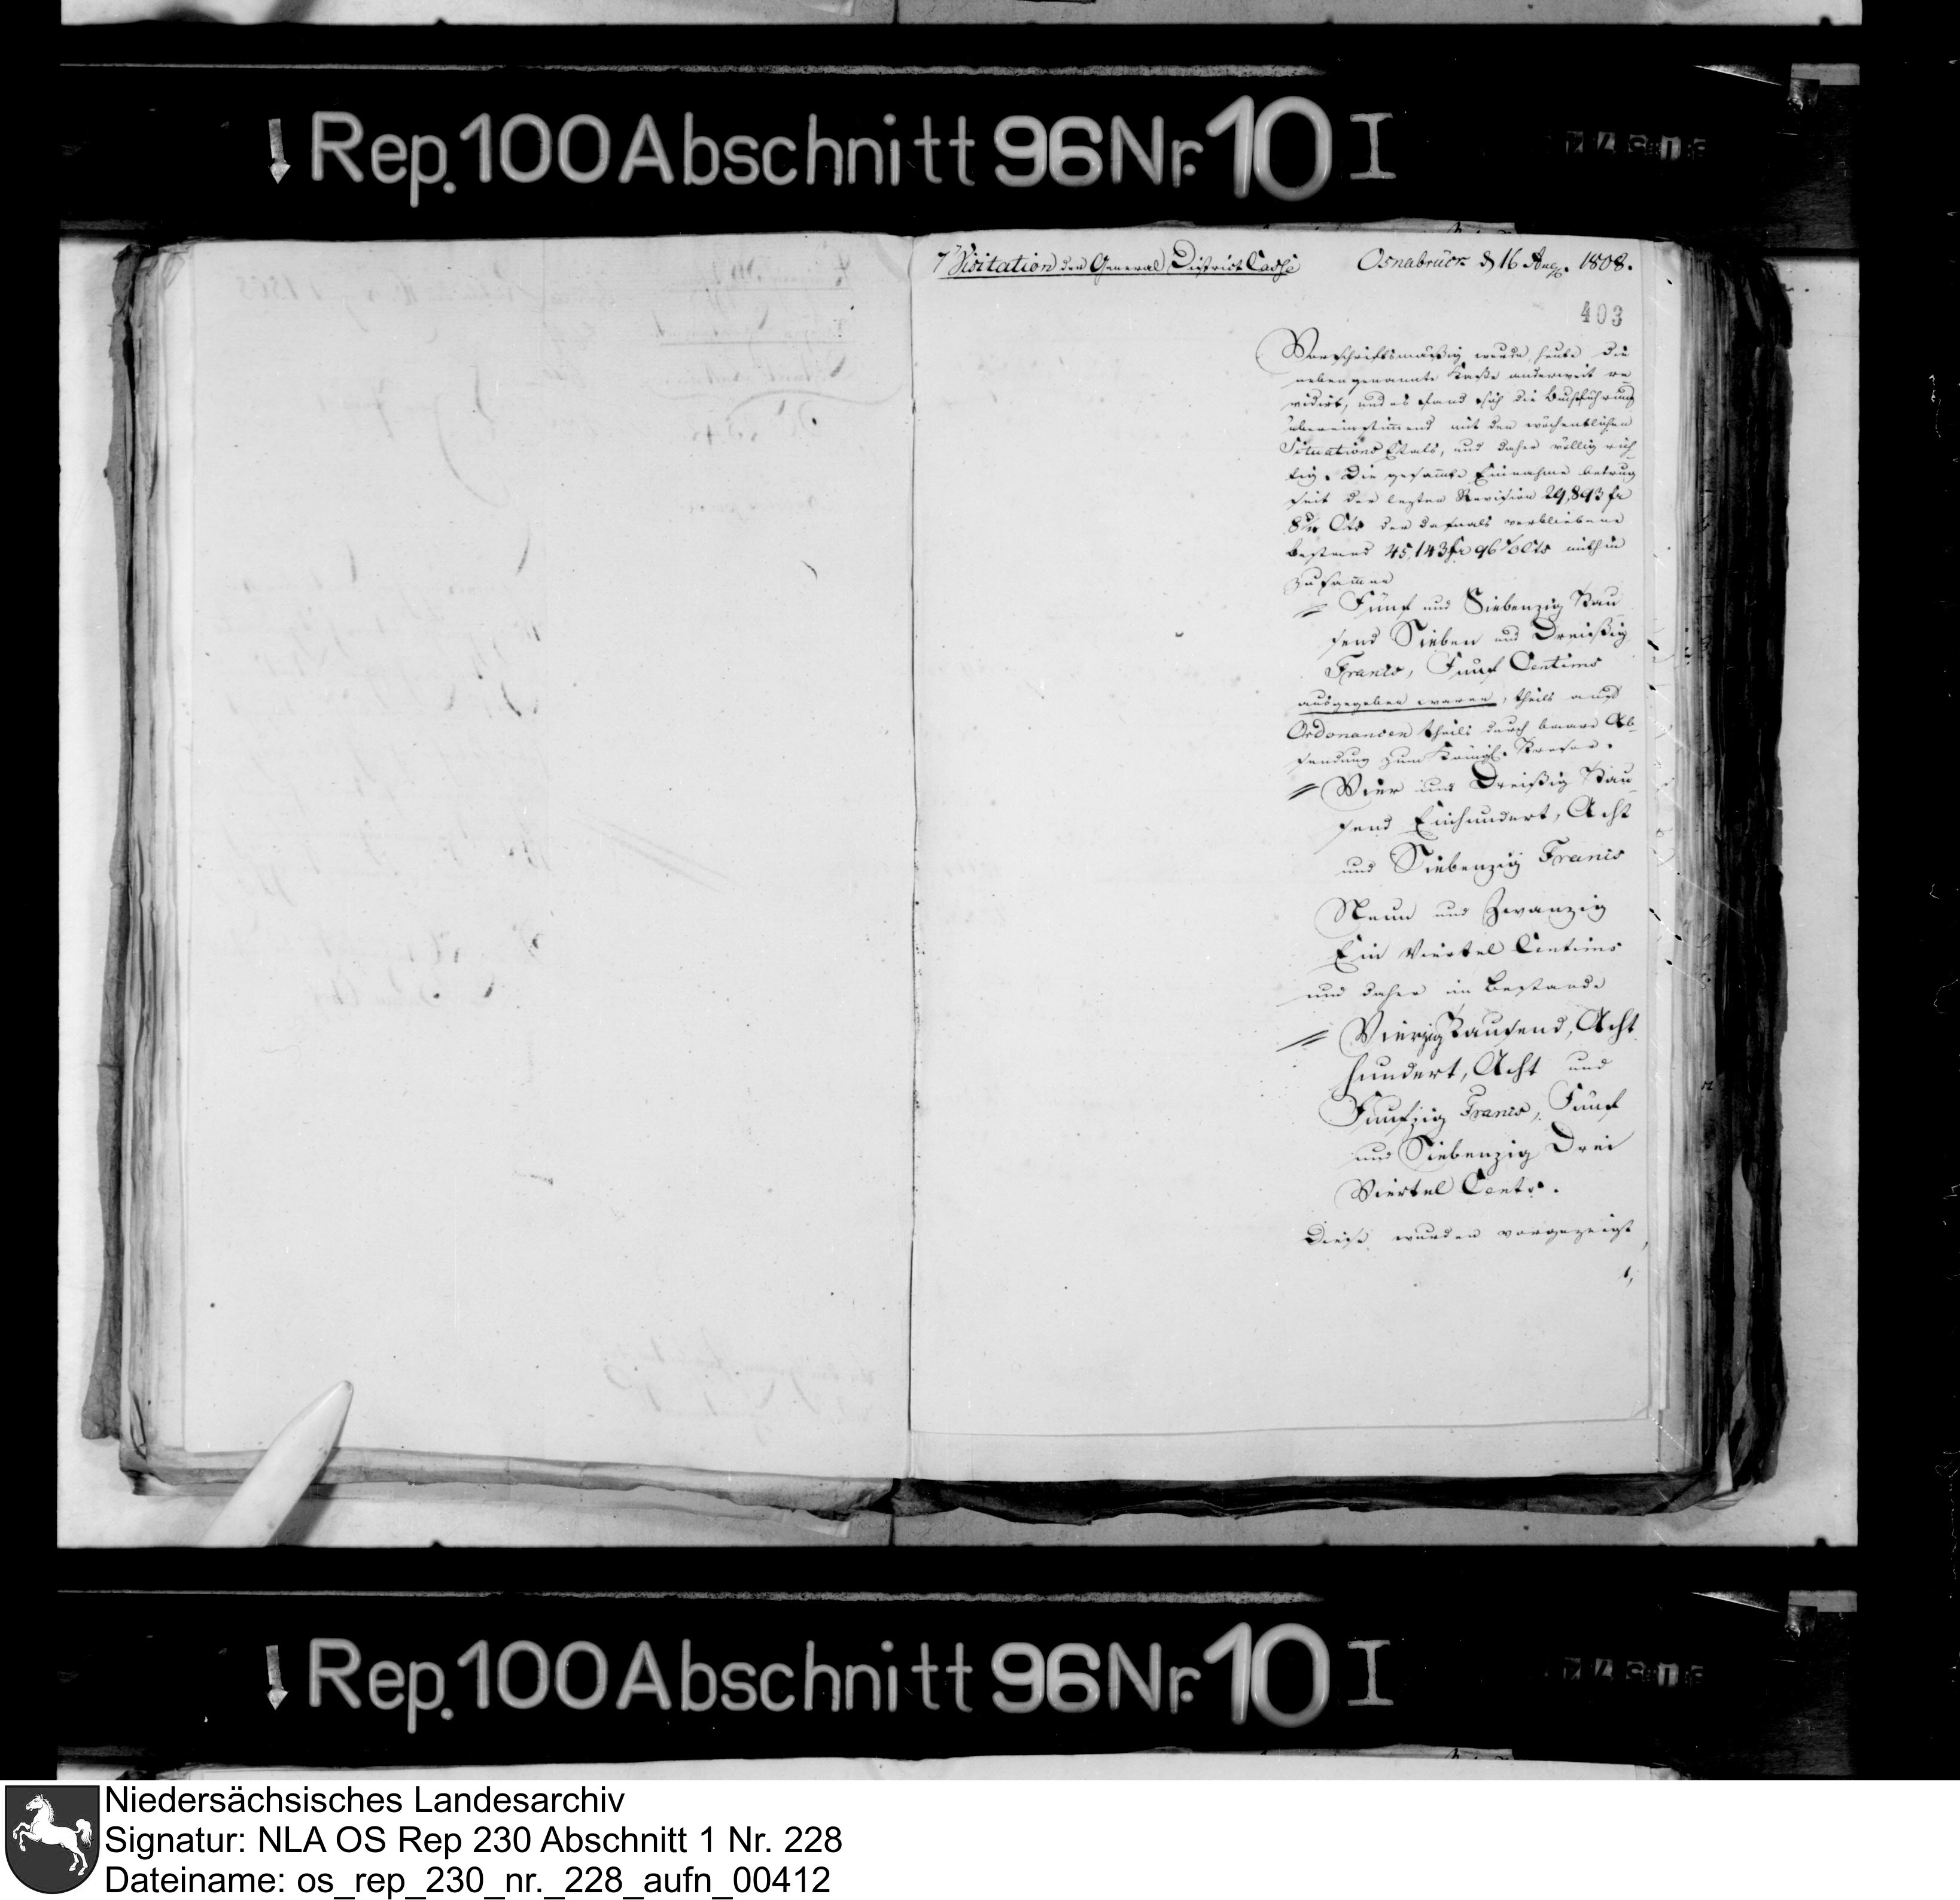 Rep. 100 Abschnitt 96 Nr. 10 I
7 Visitation der General District Casse Osnabrück d 16 Aug. 1808.
403
Vorschriftsmäßig wurde heute die
nebengenannte Kasse anderweit re-
vidirt, und es fand sich die Buchführung
übereinstimmend mit den wöchentlichen
Situations Etats, und daher völlig rich-
tig. Die gesam̄te Einnahme betrug
seit der lezten Revision 29,893 fr
Cts der damals verbliebene
Bestand 45,143 fr 96 Cts mithin
zusam̄en
Fünf und Siebenzig Tau
send Sieben und Dreissig
Francs, Fünf Centims
ausgegeben waren, theils auf
Ordonancen theils durch baare Ab-
sendung zum Königl. Tresor.
Vier und Dreißig Tau-
send Einhundert, Acht
und Siebenzig Francs
Neun und Zwanzig
Ein Viertel Centims
und daher in Bestande
Vierzig Tausend, Acht
hundert, Acht und
Funfzig Francs, Fünf
und Siebenzig Drei
Viertel Cents.
Diese wurden vorgezeigt
Rep. 100 Abschnitt 96 Nr. 10 I
Niedersächsisches Landesarchiv
Signatur: NLA OS Rep 230 Abschnitt 1 Nr. 228
Dateiname: os_rep_230_nr._228_aufn_00412